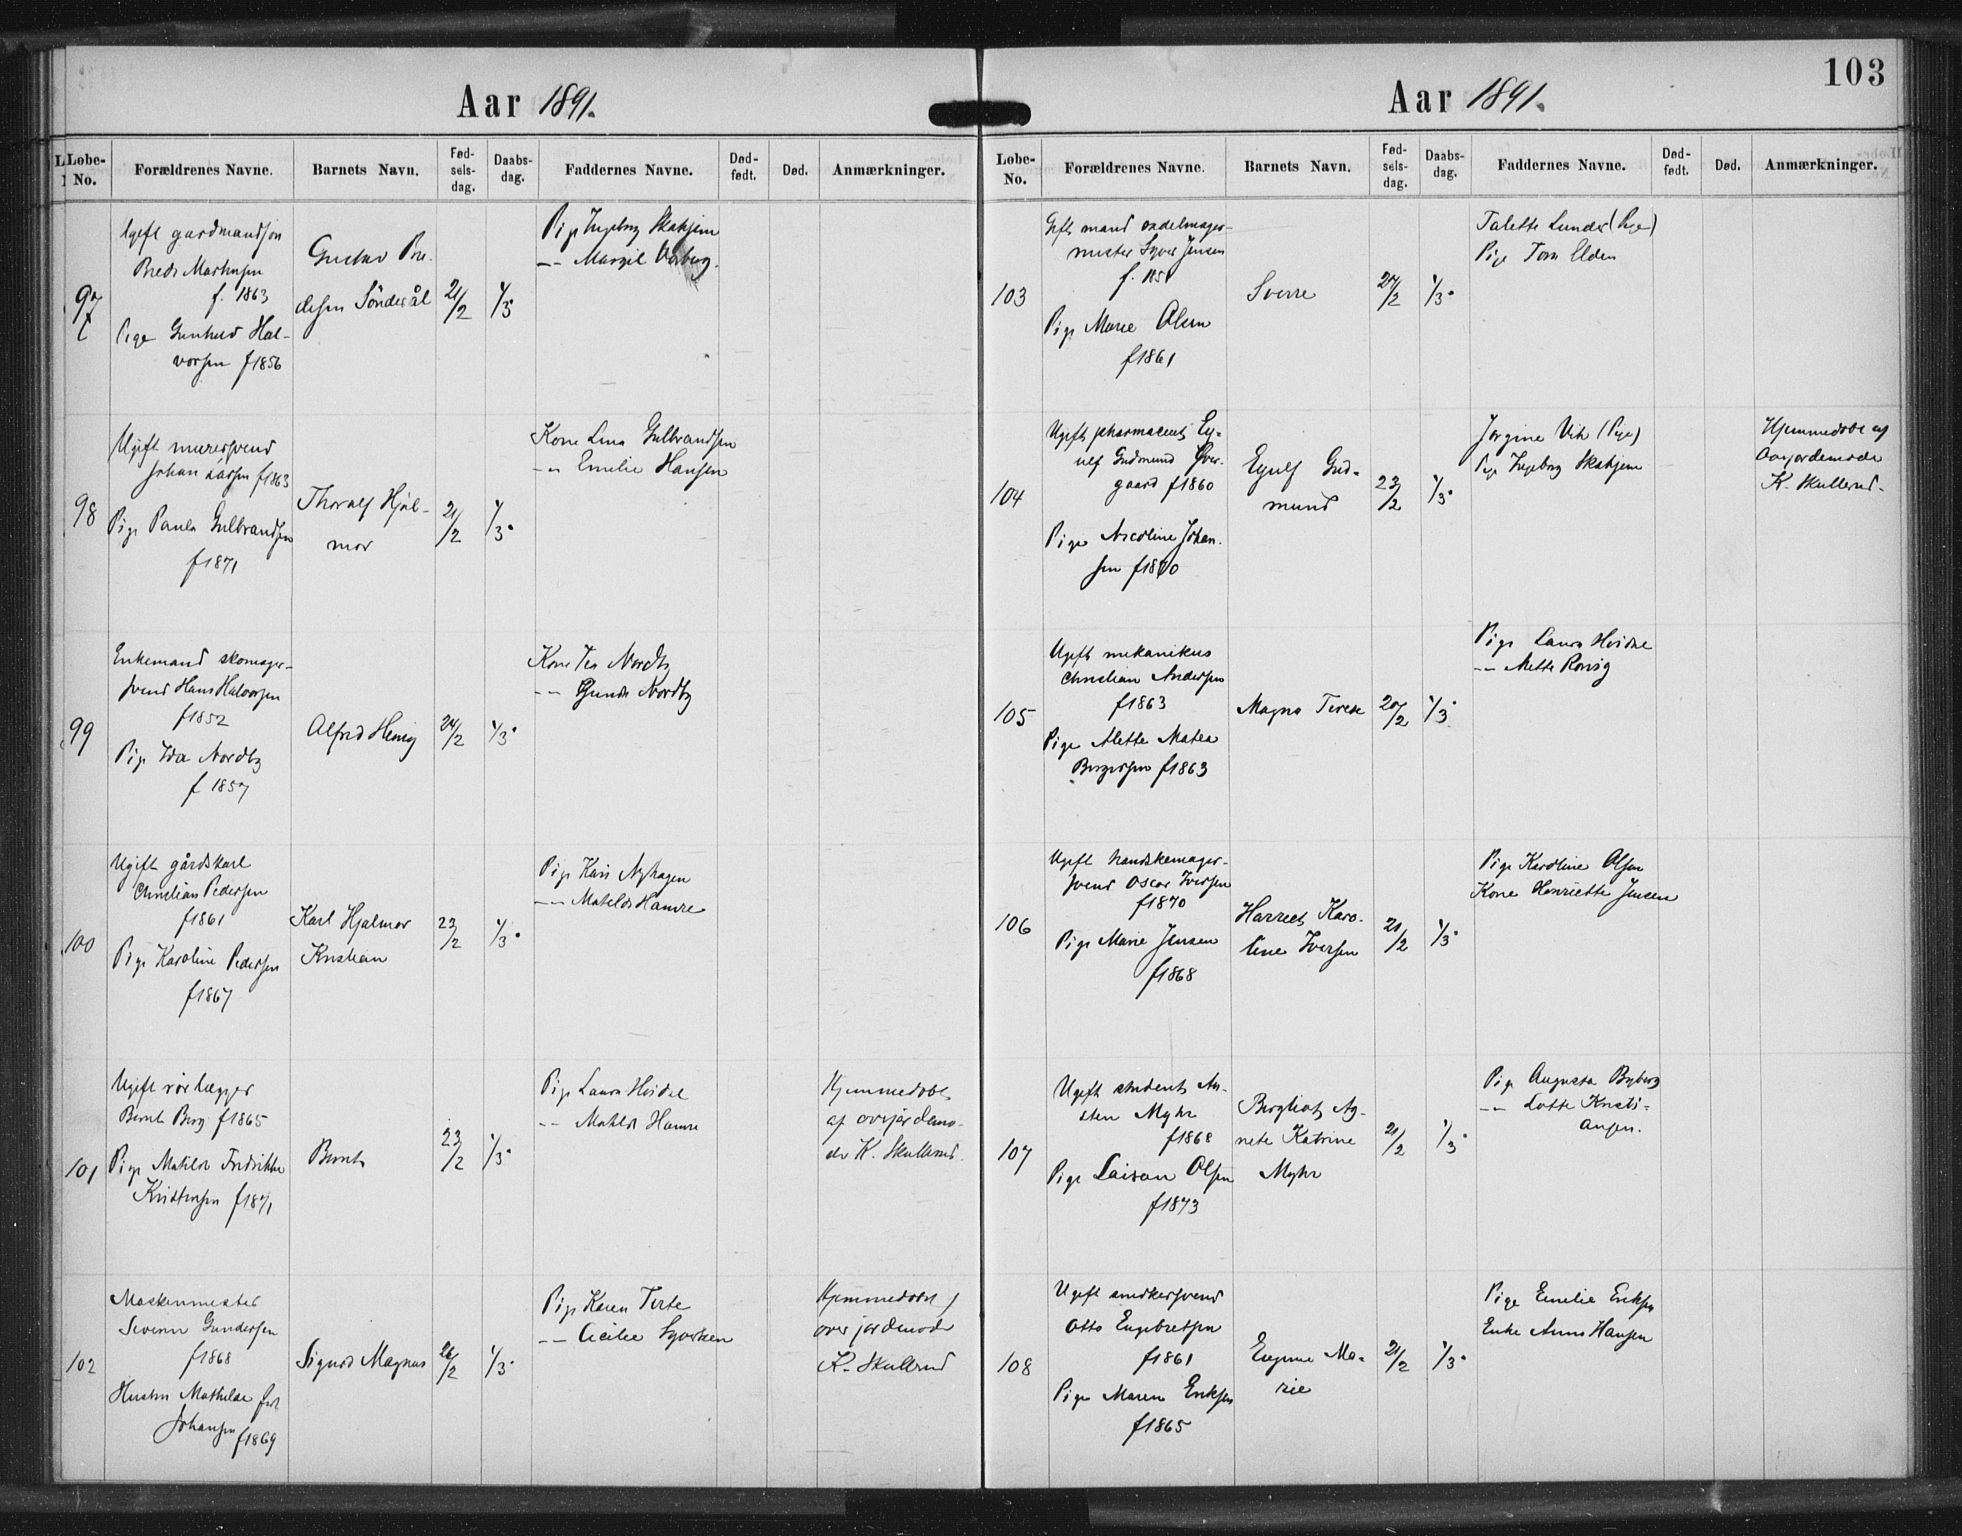 Aar 1891.
Løbe-No. Forældrenes Navne. Barnets Navn. Fød-sels-dag. Daabs-dag. Faddernes Navne. Død-født. Død. Anmærkninger.
97
Ugift gardmandsøn
Martinsen
f. 1863
Pige Gunhild Hal-
vorsen f1856
Gustav Bre-
desen Söndesål
21/2
1/3
Pige Ingeborg Skakjem
-- Margit
98
Ugift murersvend
Johan Larsen f1863
Pige Paula Gulbrandsen
f1871
Thoralf Hjal-
mar
21/2
1/3
Kone Lina Gulbrandsen
-- Emilie Hansen
99
Enkemand skomager-
svend Hans Halvorsen
f1852
Pige Ida Nordby
f 1857
Alfred Henry
24/2
1/3
Kone Nordby
-- Gunda Nordby
100
Ugift gårdskarl
Christian Pedersen
f1861
Pige Karoline Pedersen
f1867
Karl Hjalmar
Kristian
23/2
1/3
Pige Kari Nyhagen
-- Matilde Hamre
101
Ugift rörlægger
Bernt Berg f1865
Pige Matilde Fredrikke
Kristensen f1871
Bernt
23/2
1/3
Pige Laura
-- Matilde Hamre
Hjemmedøbt
af overjordemo-
der K. Skullerud.
102
Maskinmester
Severin Gundersen
f1868
Hustru Mathilde født
Johansen f1869
Sigurd Magnus
26/2
1/3
Pige Karen
-- Cicilie
Hjemmedøbt af
overjordemoder
K. Skullerud
103
Aar 1891.
Løbe-No. Forældrenes Navne. Barnets Navn. Fød-sels-dag. Daabs-dag. Faddernes Navne. Død-født. Død. Anmærkninger.
103
Gift mand sadelmager-
mester Syver Jensen
f. 1851
Pige Marie Olsen
f1861
Sverre
27/2
1/3
Talette Lunder (Pige)
Pige Tora Elden
104
Ugift pharmaceut Ey-
ulf Gudmund Over-
gaard f1860
Pige Nicoline Johan-
sen f1870
Eyulf Gud-
mund
23/2
1/3
Jørgine Vik (Pige)
Pige Ingeborg Skakjem
Hjemmedøbt af
overjordemoder
K. Skullerud.
105
Ugift mekanikus
Christian Andersen
f1863
Pige Alette Matea
Birgersen f1863
Magna Terese
20/2
1/3
Pige Laura
-- Mette
106
Ugift handskemager-
svend Oscar Iversen
f1870
Pige Marie Jensen
f1868
Harriet Karo-
line Iversen
21/2
1/3
Pige Karoline Olsen
Kone Henriette Jensen
107
Ugift student An-
sten Myhr
f1868
Pige Laison Olsen
f1873
Bergliot Ag-
nete Katrine
Myhr
21/2
1/3
Pige Augusta Byberg
-- Lotte Kristi-
ansen.
108
Ugift snedkersvend
Otto Engebretsen
f1861
Pige Maren Eriksen
f1865
Eugenie Ma-
rie
21/2
1/3
Pige Emilie Eriksen
Enke Anna Hansen